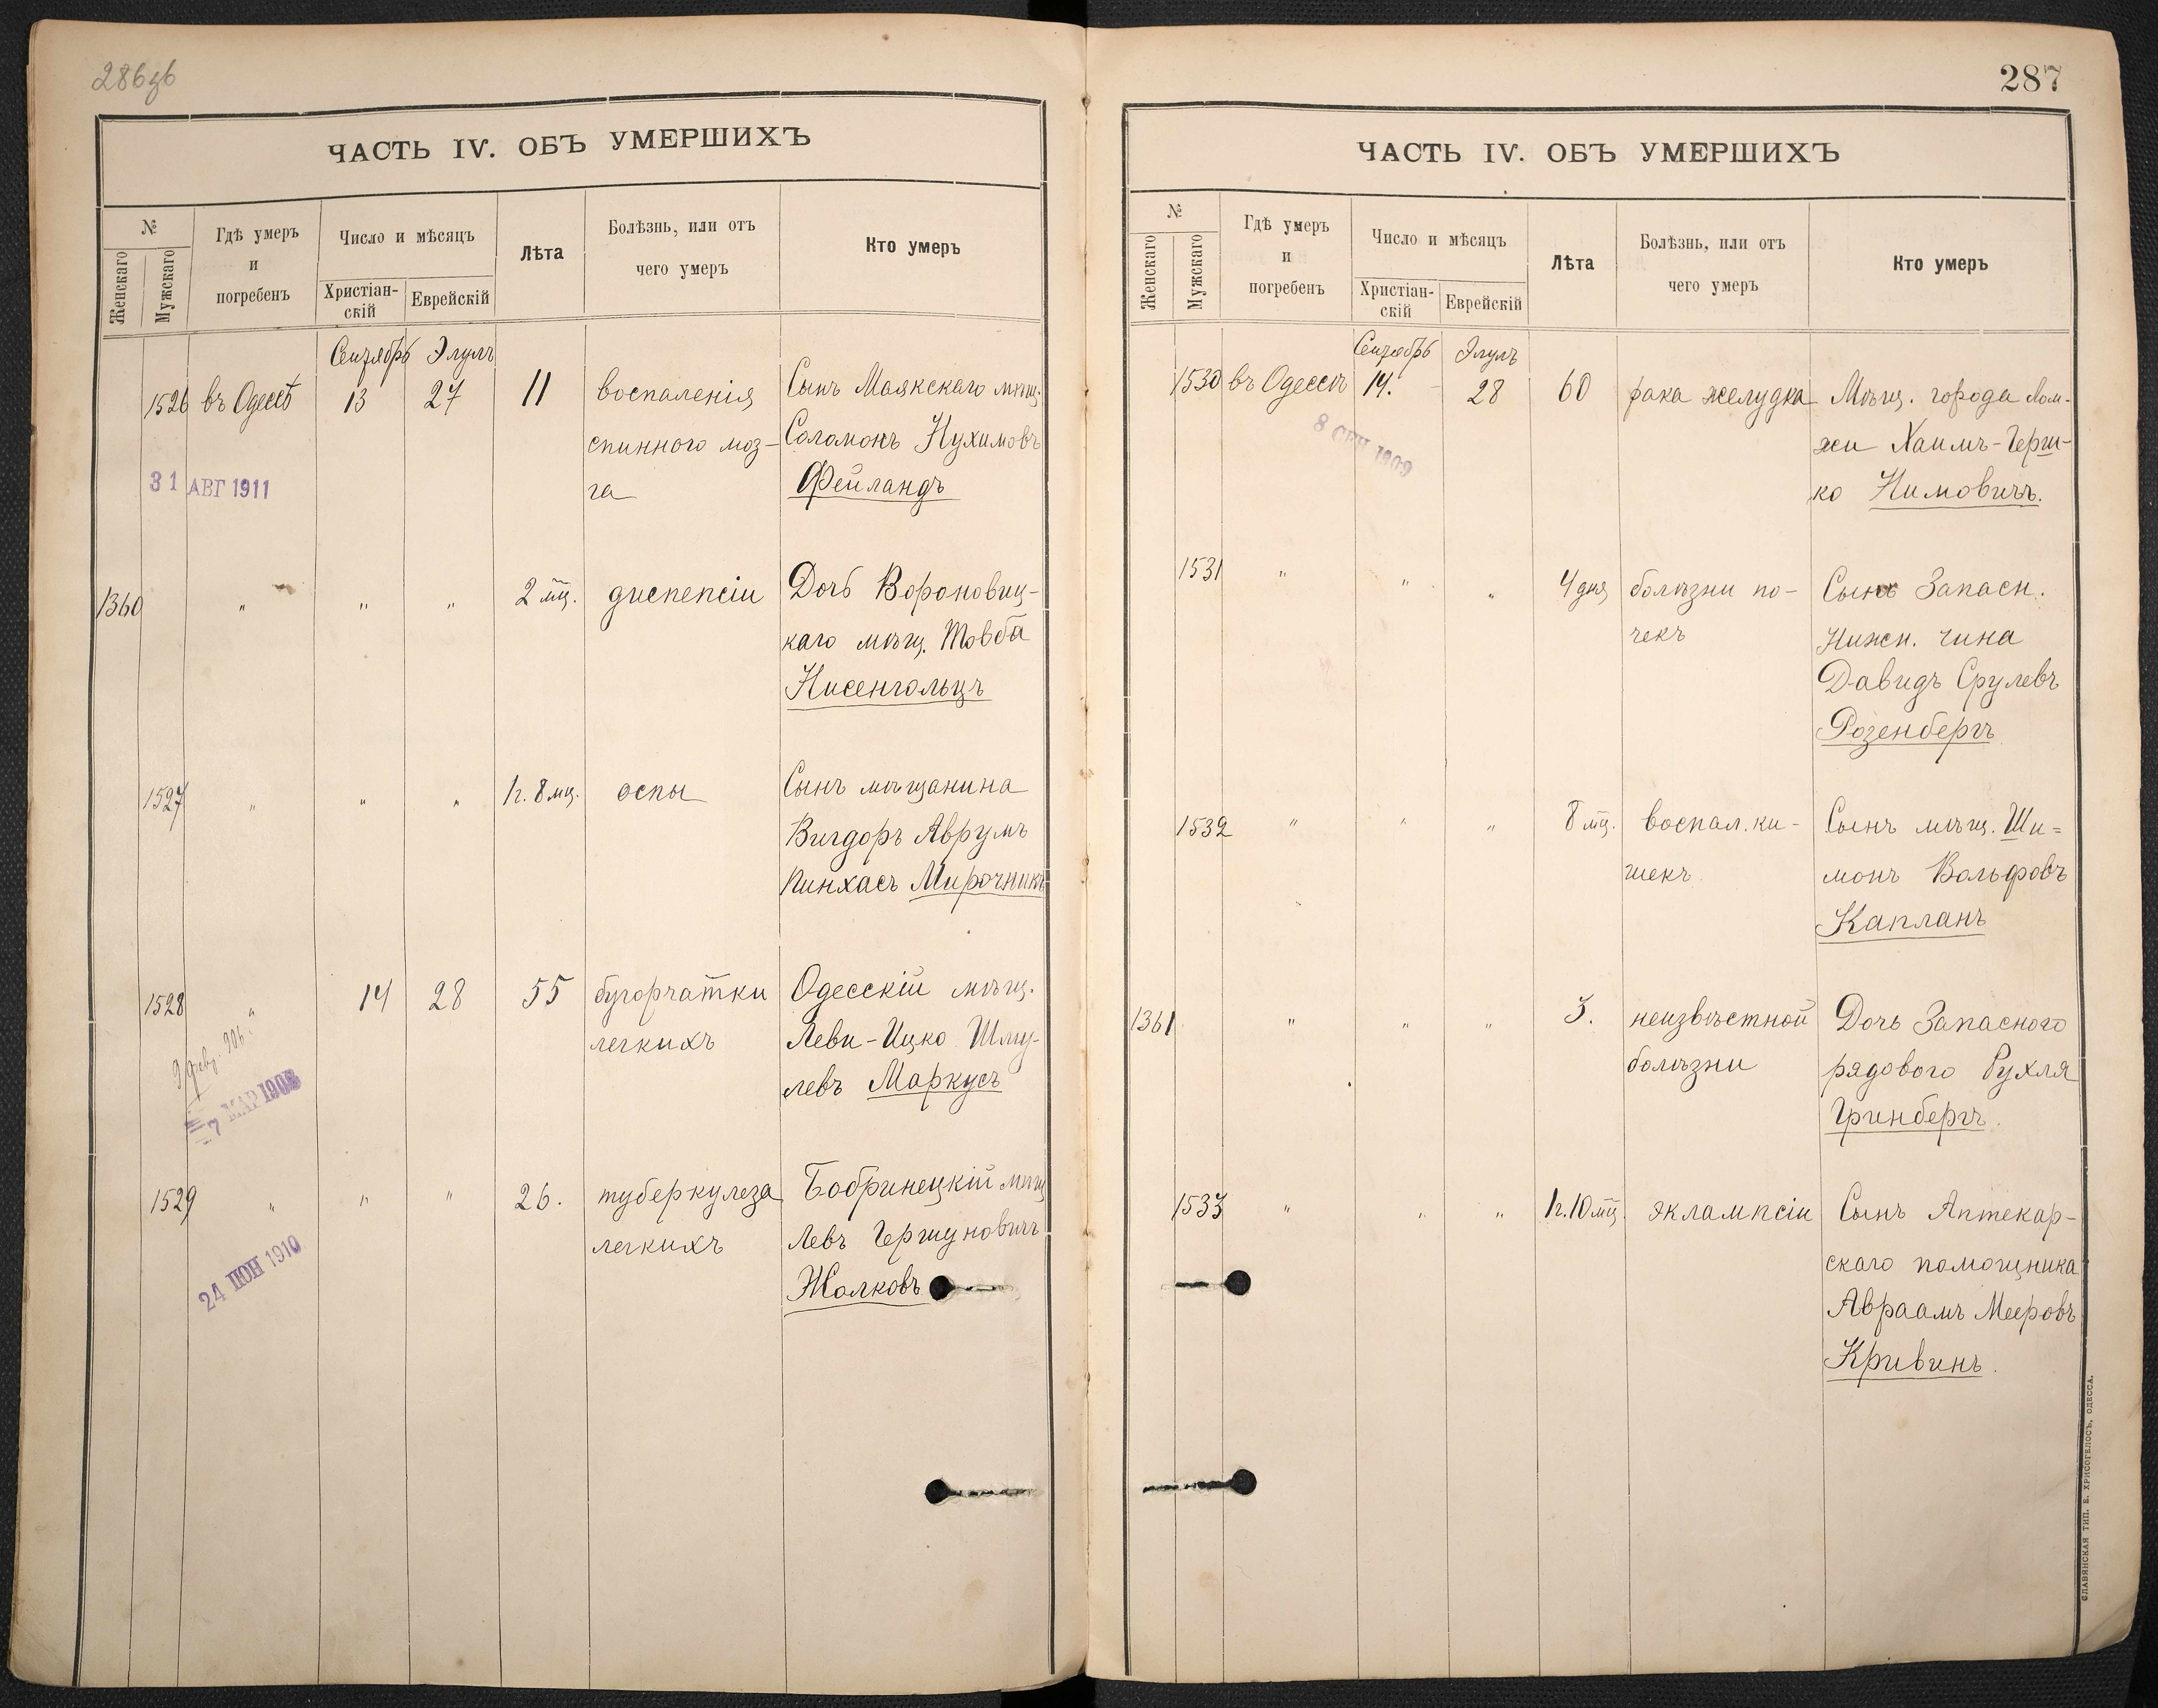 286об
ЧАСТЬ IV. ОБЪ УМЕРШИХЪ
№
Женскаго
Мужскаго
Гдѣ умеръ
и
погребенъ
Число и мѣсяцъ
Христіан-
скій
Еврейскій
Лѣта
Болѣзнь, или отъ
чего умеръ
Кто умеръ
Сентябрь Элулъ
1526 въ Одессѣ 13 27 11 воспаленія Сынъ Маякскаго мѣщ.
спинного моз- Соломонъ Нухимовъ
га Фейландъ
31 АВГ 1911
1360 " " " 2 мц. диспепсіи Дочь Вороновиц-
каго мѣщ. Товба
Нисенгольцъ
1527 " " " 1 г. 8 мц. оспы Сынъ мѣщанина
Вигдоръ Аврумъ
Пинхасъ Мирочникъ
1528 " 14 28 55 бугорчатки Одесскій мѣщ.
легкихъ Леви-Ицко Шму-
левъ Маркусъ
9 февр. 906 г.
7 МАР 1908
1529 " " " 26. туберкулеза Бобринецкій мѣщ
легкихъ Левъ Гершуновичъ
Жолковъ
24 ІЮН 1910
287
ЧАСТЬ IV. ОБЪ УМЕРШИХЪ
№
Женскаго
Мужскаго
Гдѣ умеръ
и
погребенъ
Число и мѣсяцъ
Христіан-
скій
Еврейскій
Лѣта
Болѣзнь, или отъ
чего умеръ
Кто умеръ
Сентябрь Элулъ
1530 въ Одессѣ 14. 28 60 рака желудка Мѣщ. города Лом-
жи Хаимъ-Герш-
ко Нимовичъ.
8 СЕН 1909
1531 " " " 4 дня болѣзни по- Сынъ Запасн.
чекъ Нижн. чина
Давидъ Срулевъ
Розенбергъ
1532 " " " 8 мц. воспал. ки- Сынъ мѣщ. Ши-
шекъ монъ Вольфовъ
Капланъ
1361 " " " 3. неизвѣстной Дочь Запасного
болѣзни рядового Рухля
Гринбергъ.
1533 " " " 1 г. 10 мц. эклампсіи Сынъ Аптекар-
скаго помощника
Авраамъ Мееровъ
Кривинъ.
СЛАВЯНСКАЯ ТИП. Е. ХРИСОГЕЛОСЪ, ОДЕССА.